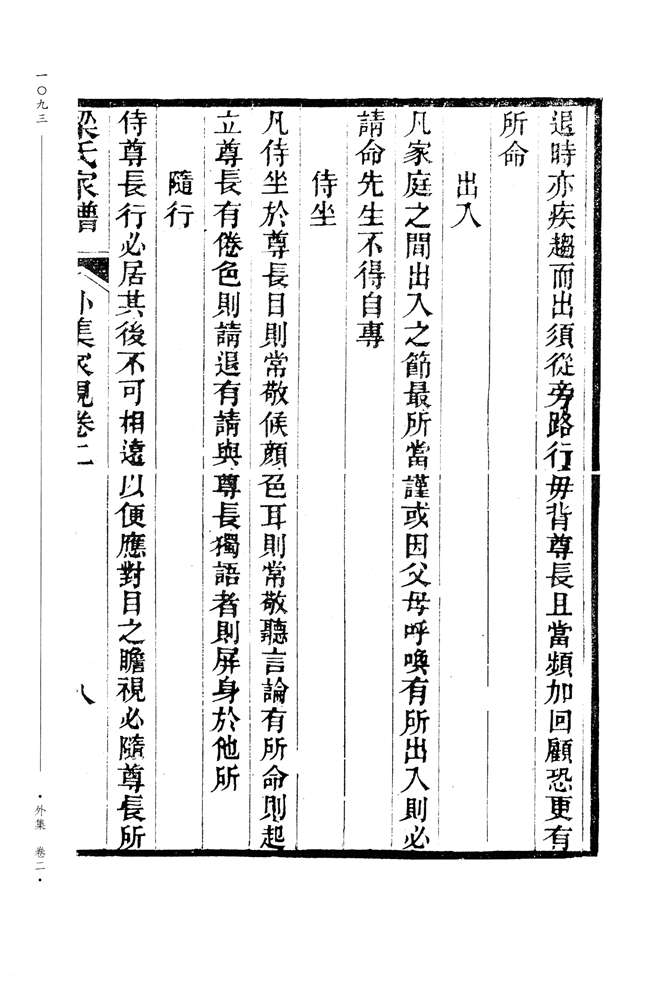 退時亦疾趨而出須從旁路行毋背尊長且當頻加回顧恐更有
所命
出入
凡家庭之間出入之節最所當謹或因父母呼喚有所出入則必
請命先生不得自專
侍坐
凡侍坐於尊長目則常敬候顏色耳則常敬聽言論有所命則起
立尊長有倦色則請退有請與尊長獨語者則屏身於他所
隨行
侍尊長行必居其後不可相遠以便應對目之瞻視必隨尊長所
梁氏家譜 外集家規卷二 八
一〇九三
·外集 卷二·